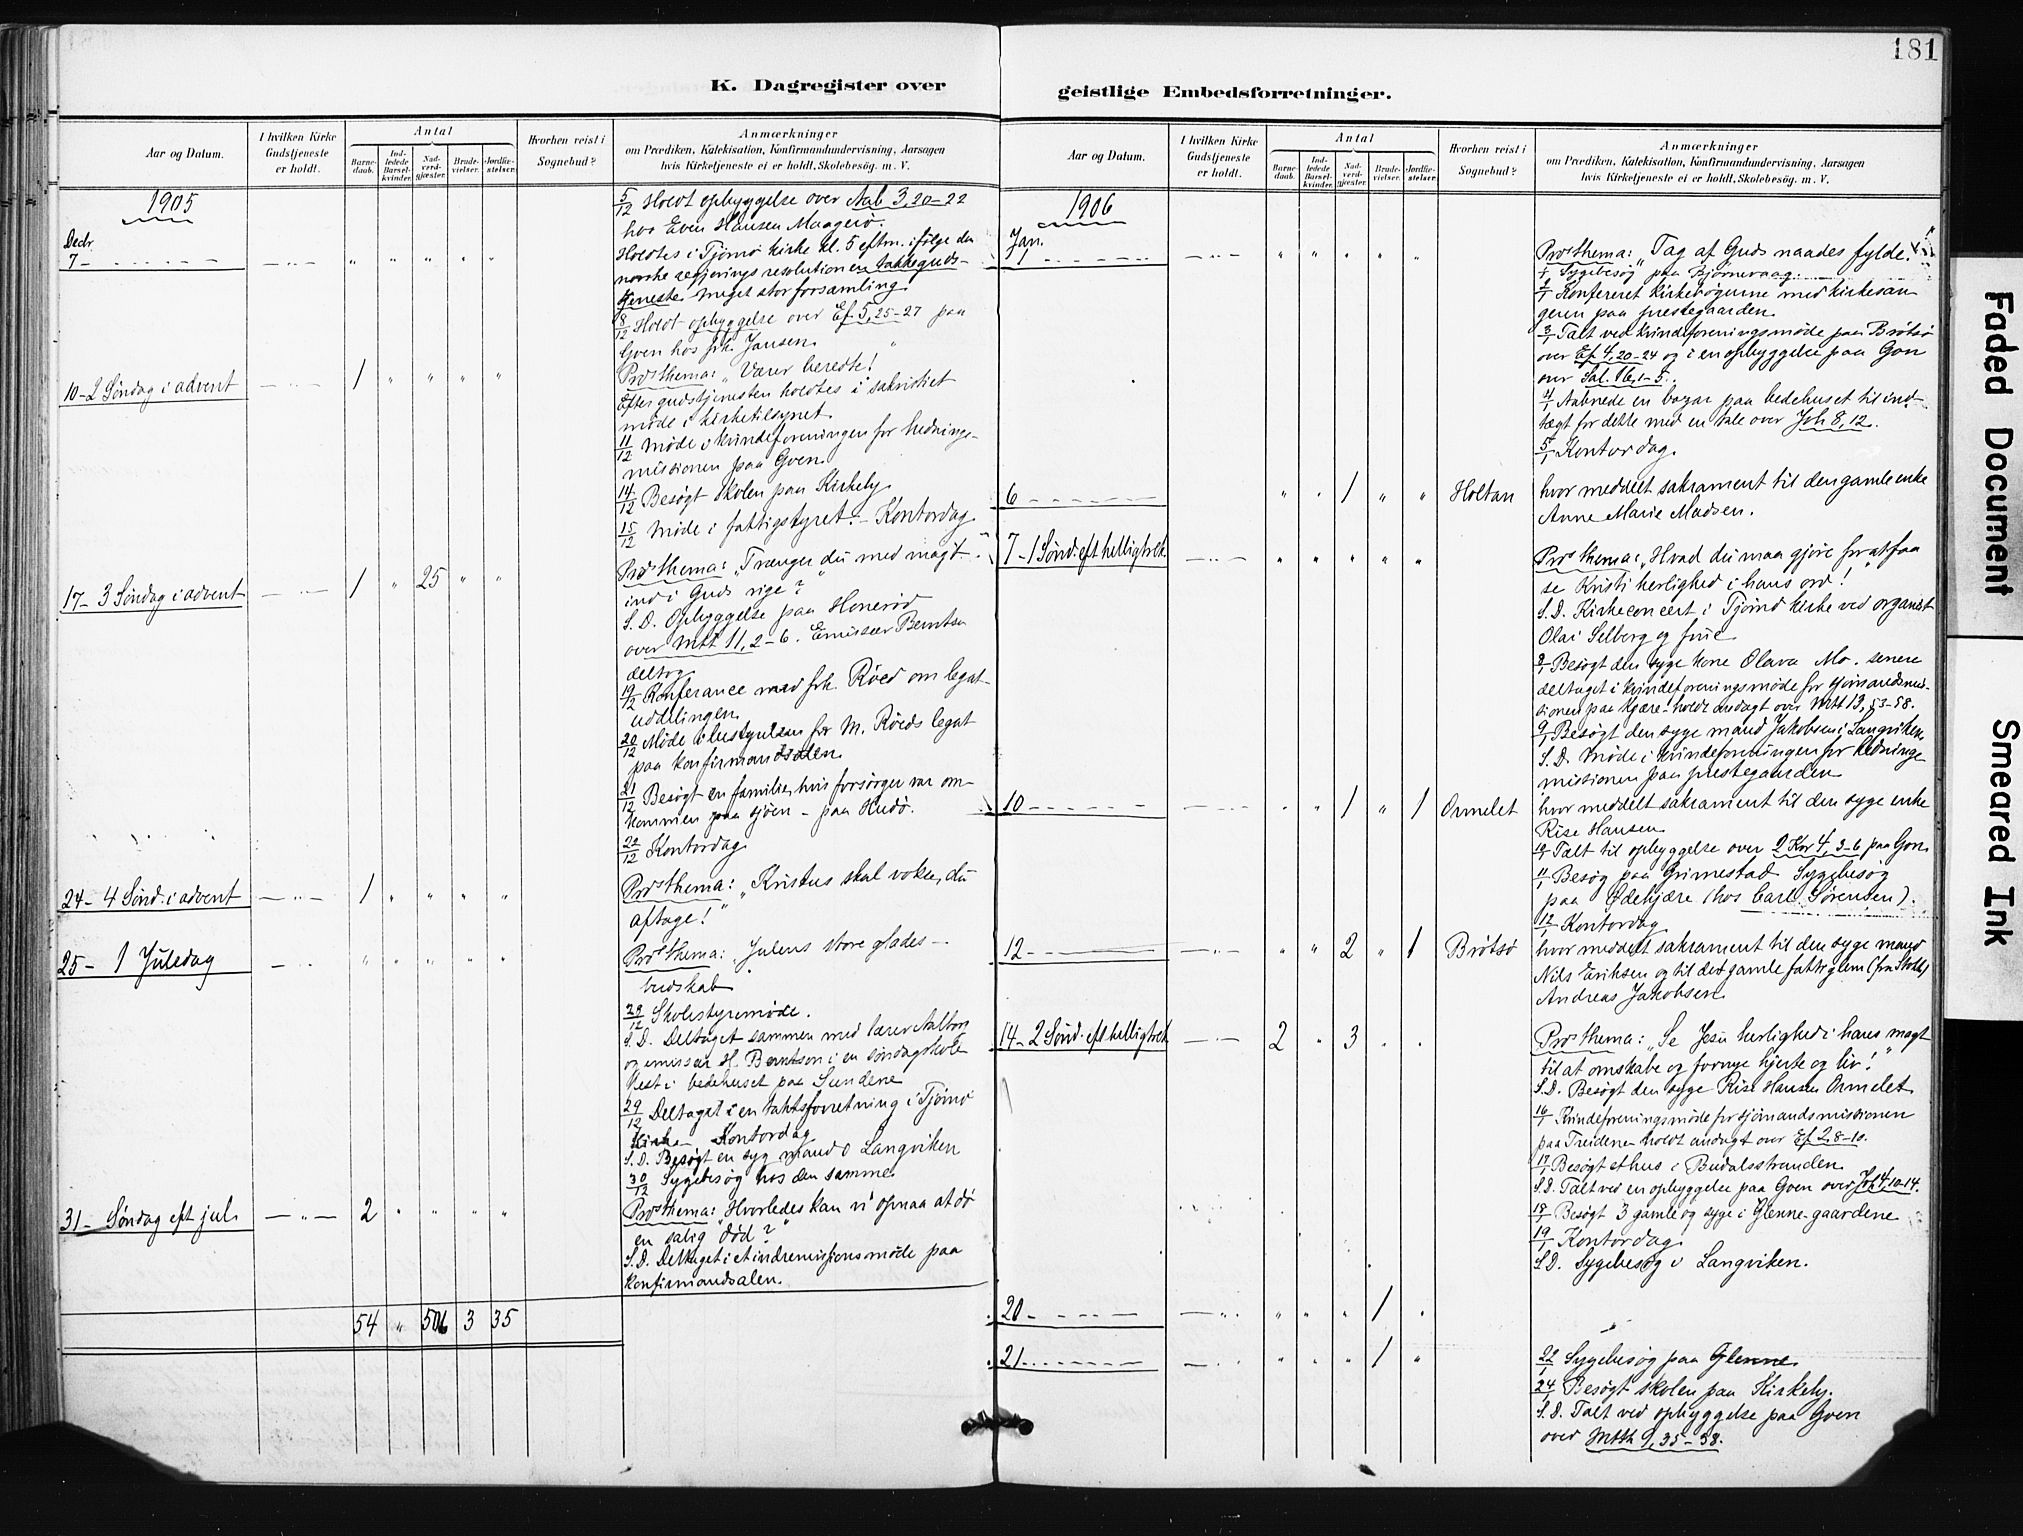 181
K. Dagregister over
geistlige Embedsforretninger.
Aar og Datum.
I hvilken Kirke
Gudstjeneste
er holdt.
Antal
Barne-
daab.
Ind-
ledede
Barsel-
kvinder.
Nad-
verd-
gjæster.
Brude-
vielser.
Jordfæ-
stelser.
Hvorhen reist i
Sognebud?
Anmærkninger
om Prædiken, Katekisation, Konfirmandundervisning, Aarsagen
hvis Kirketjeneste ei er holdt, Skolebesøg. m. V.
1905
5/12 Holdt opbyggelse over Aab 3, 20-22
hos Even Hansen Maagerø.
Decbr.
7 -
Holdtes i Tjømø kirke kl. 5 eftm. ifølge den
norske regjerings resolution en takkeguds-
tjeneste. Meget stor forsamling.
8/12 Holdt opbyggelse over Ef. 5, 25-27 paa
Goen hos frk. Jansen.
10 - 2 Søndag i advent 1 " " " "
Præs thema: "Værer beredte!"
Efter gudstjenesten holdtes i sakristiet
møde i kirketilsynet.
11/12 Møde i kvindeforeningen for hednings-
missionen paa Goen.
14/12 Besøgt skolen paa Kirkeby.
15/12 Møde i fattigstyret. - Kontordag.
17 - 3 Søndag i advent 1 " 25 " "
Præs thema: "Trænger du med magt
ind i Guds rige?"
S. D. Opbyggelse paa Hønerød
over Mtt 11, 2-6. Emissær Berntsen
deltog.
19/12 Konferance med frk. Røed om legat-
uddelingen.
20/12 Møde i bestyrelsen for M. Røeds legat
paa konfirmandsalen.
21/12 Besøgt en familie, hvis forsørger var om-
kommen paa sjøen - paa Hudø.
22/12 Kontordag
24 - 4 Sønd. i advent 1 " " " "
Præs thema: "Kristus skal vokse, du
aftage!"
25 - 1 Juledag " " " " "
Præs thema: "Julens store glædes-
budskab"
28/12 Skolestyremøde.
S. D. Deltaget sammen med lærer Aalbon
og emissær H. Berntsen i en søndagsskole
fest i bedehuset paa Sundene
29/12 Deltaget i en takstforretning i Tjømø
Kirke - Kontordag
S. D. Besøgt en syg mand i Langviken
30/12 Sygebesøg hos den samme
31 - Søndag eft jul. 2 " " " "
Præs thema: "Hvorledes kan vi opnaa at dø
en salig død?"
S. D. Deltaget i et indremissionsmøde paa
konfirmandsalen.
54 " 506 3 35
Aar og Datum.
I hvilken Kirke
Gudstjeneste
er holdt.
Antal
Barne-
daab.
Ind-
ledede
Barsel-
kvinder.
Nad-
verd-
gjæster.
Brude-
vielser.
Jordfæ-
stelser.
Hvorhen reist i
Sognebud?
Anmærkninger
om Prædiken, Katekisation, Konfirmandundervisning, Aarsagen
hvis Kirketjeneste ei er holdt, Skolebesøg. m. V.
1906
Jan.
1 " " " " "
Præs thema: "Tag af Guds naades fylde."
1/1 Sygebesøg paa Bjørnevaag.
2/1 Konfereret kirkebøgerne med kirkesan
geren paa prestegaarden.
3/1 Talt ved kvindeforeningsmøde paa Brøtsø
over Ef 4, 20-24 og i en opbyggelse paa Goen
over Sal. 16, 1-5.
4/1 Aabnede en bazar paa bedehuset til ind-
tægt for dette med en tale over Joh 8, 12.
5/1 Kontordag.
6 " " 1 " " Holtan
hvor meddelt sakrament til den gamle enke
Anne Marie Madsen.
7 - 1 Sønd. eft helligtrek. " " " " "
Præs thema: "Hvad du maa gjøre for at faa
se Kristi herlighed i hans ord!"
S. D. Kirkeconcert i Tjømø kirke ved organist
Olai Selberg og frue
8/1 Besøgt den syge kone Olava Mo. senere
deltaget i kvindeforeningsmøde for sjømandsmis-
sionen paa Kjære - holdt andagt over Mtt 13, 53-58.
9/1 Besøgt den syge mand Jakobsen i Langviken.
S. D. Møde i kvindeforeningen for hedninge
missionen paa prestegaarden
10 " " 1 " 1 Ormelet
hvor meddelt sakrament til den syge enke
Rise Hansen
10/1 Talt til opbyggelse over 2 Kor 4, 3-6 paa Goen.
11/1 Besøg paa Grimestad Sygebesøg
paa Ødekjære (hos Carl Sørensen).
12/1 Kontordag
12 " " 2 " 1 Brøtsø
hvor meddelt sakrament til den syge mand
Nils Eriksen og til det gamle fattiglem (fra Stokke)
Andreas Jakobsen
14 - 2 Sønd. eft helligtrek 2 " 3 " "
Præs thema: "Se Jesu herlighed i hans magt
til at omskabe og fornye hjerte og liv!"
S. D. Besøgt den syge Rise Hansen Ormelet
16/1 Kvindeforeningsmøde for sjømandsmissionen
paa Treidene holdt andagt over Ef 2, 8-10.
17/1 Besøgt et hus i Budalsstranden
S. D. Talt ved en opbyggelse paa Goen over Joh 4, 10-14.
18/1 Besøgt 3 gamle og syge i Glenne-gaardene
19/1 Kontordag.
S. D. Sygebesøg i Langviken.
20 - " " " 1 "
21 " " " 1 "
22/1 Sygebesøg paa Glenne.
24/1 Besøgt skolen paa Kirkeby.
S. D. Talt ved opbyggelse paa Goen
over Mtth 9, 35-38.
Faded Document
Smeared Ink